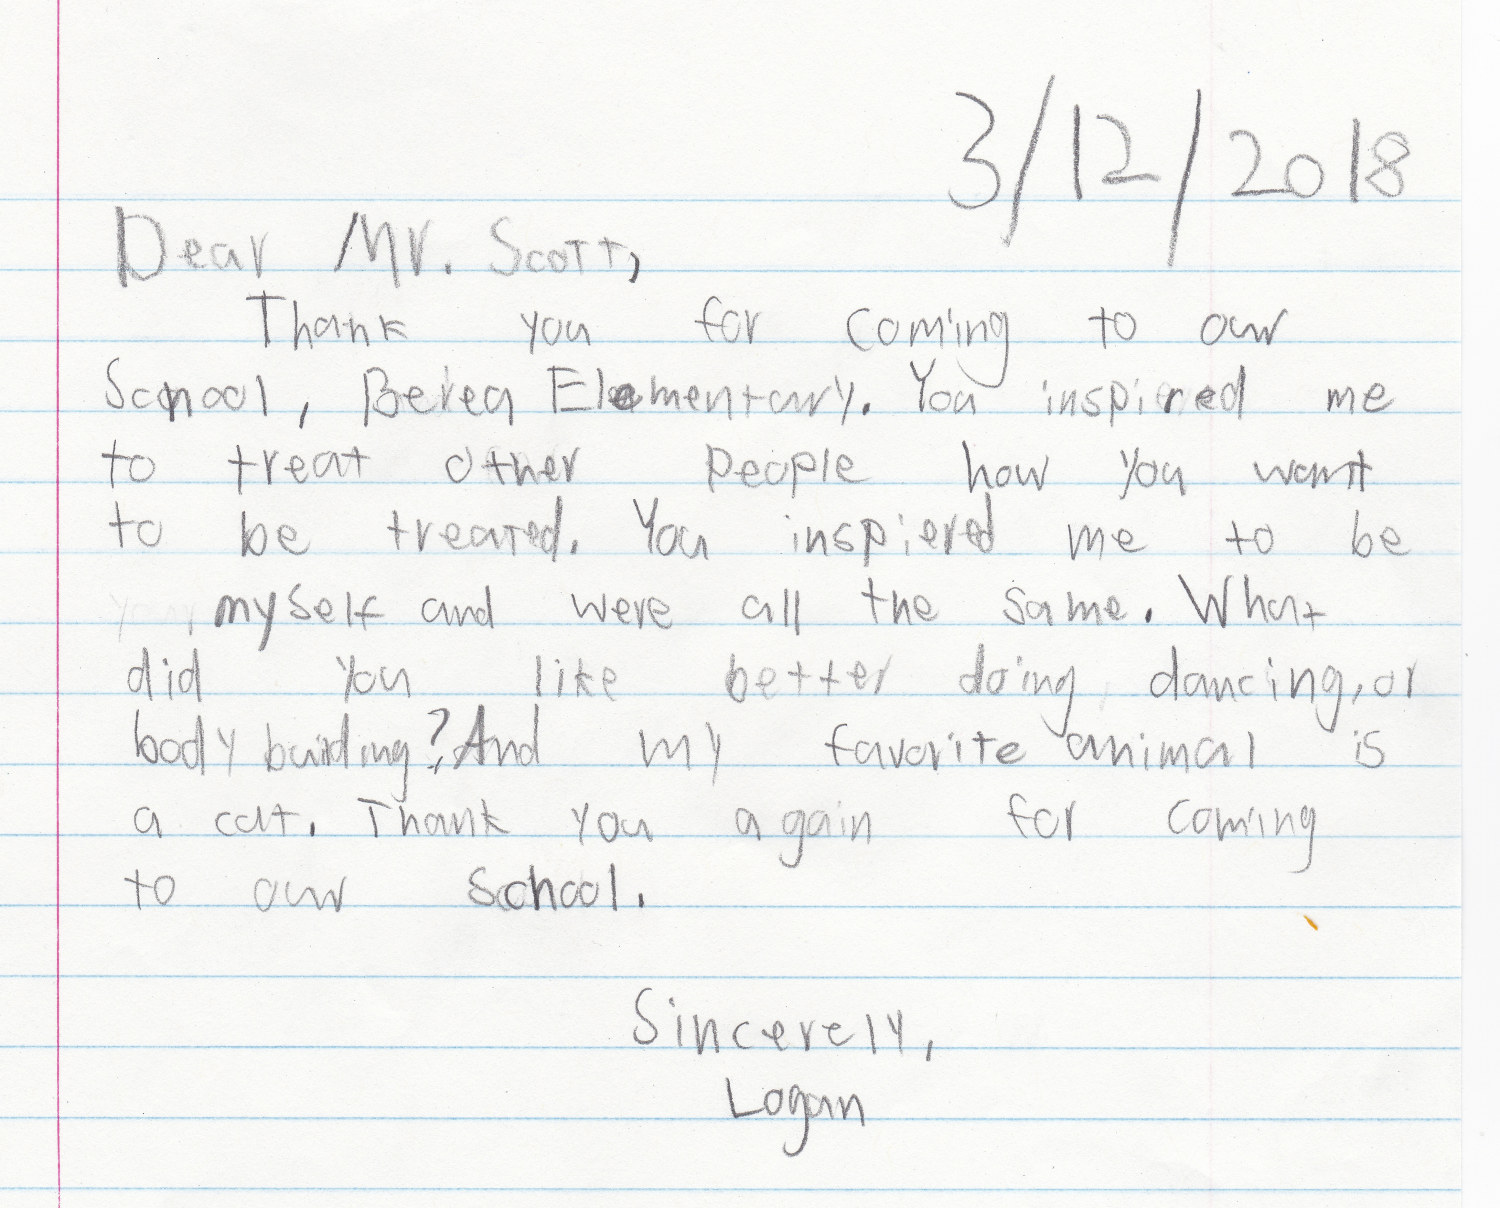 3/12/2018
Dear Mr. Scott,
Thank you for coming to our
School, Berea Elementary. You inspired me
to treat other people how you want
to be treated. You inspiered me to be
myself and were all the same. What
did you like better doing dancing, or
body building? And my favorite animal is
a cat. Thank you again for coming
to our school.
Sincerely,
Logan